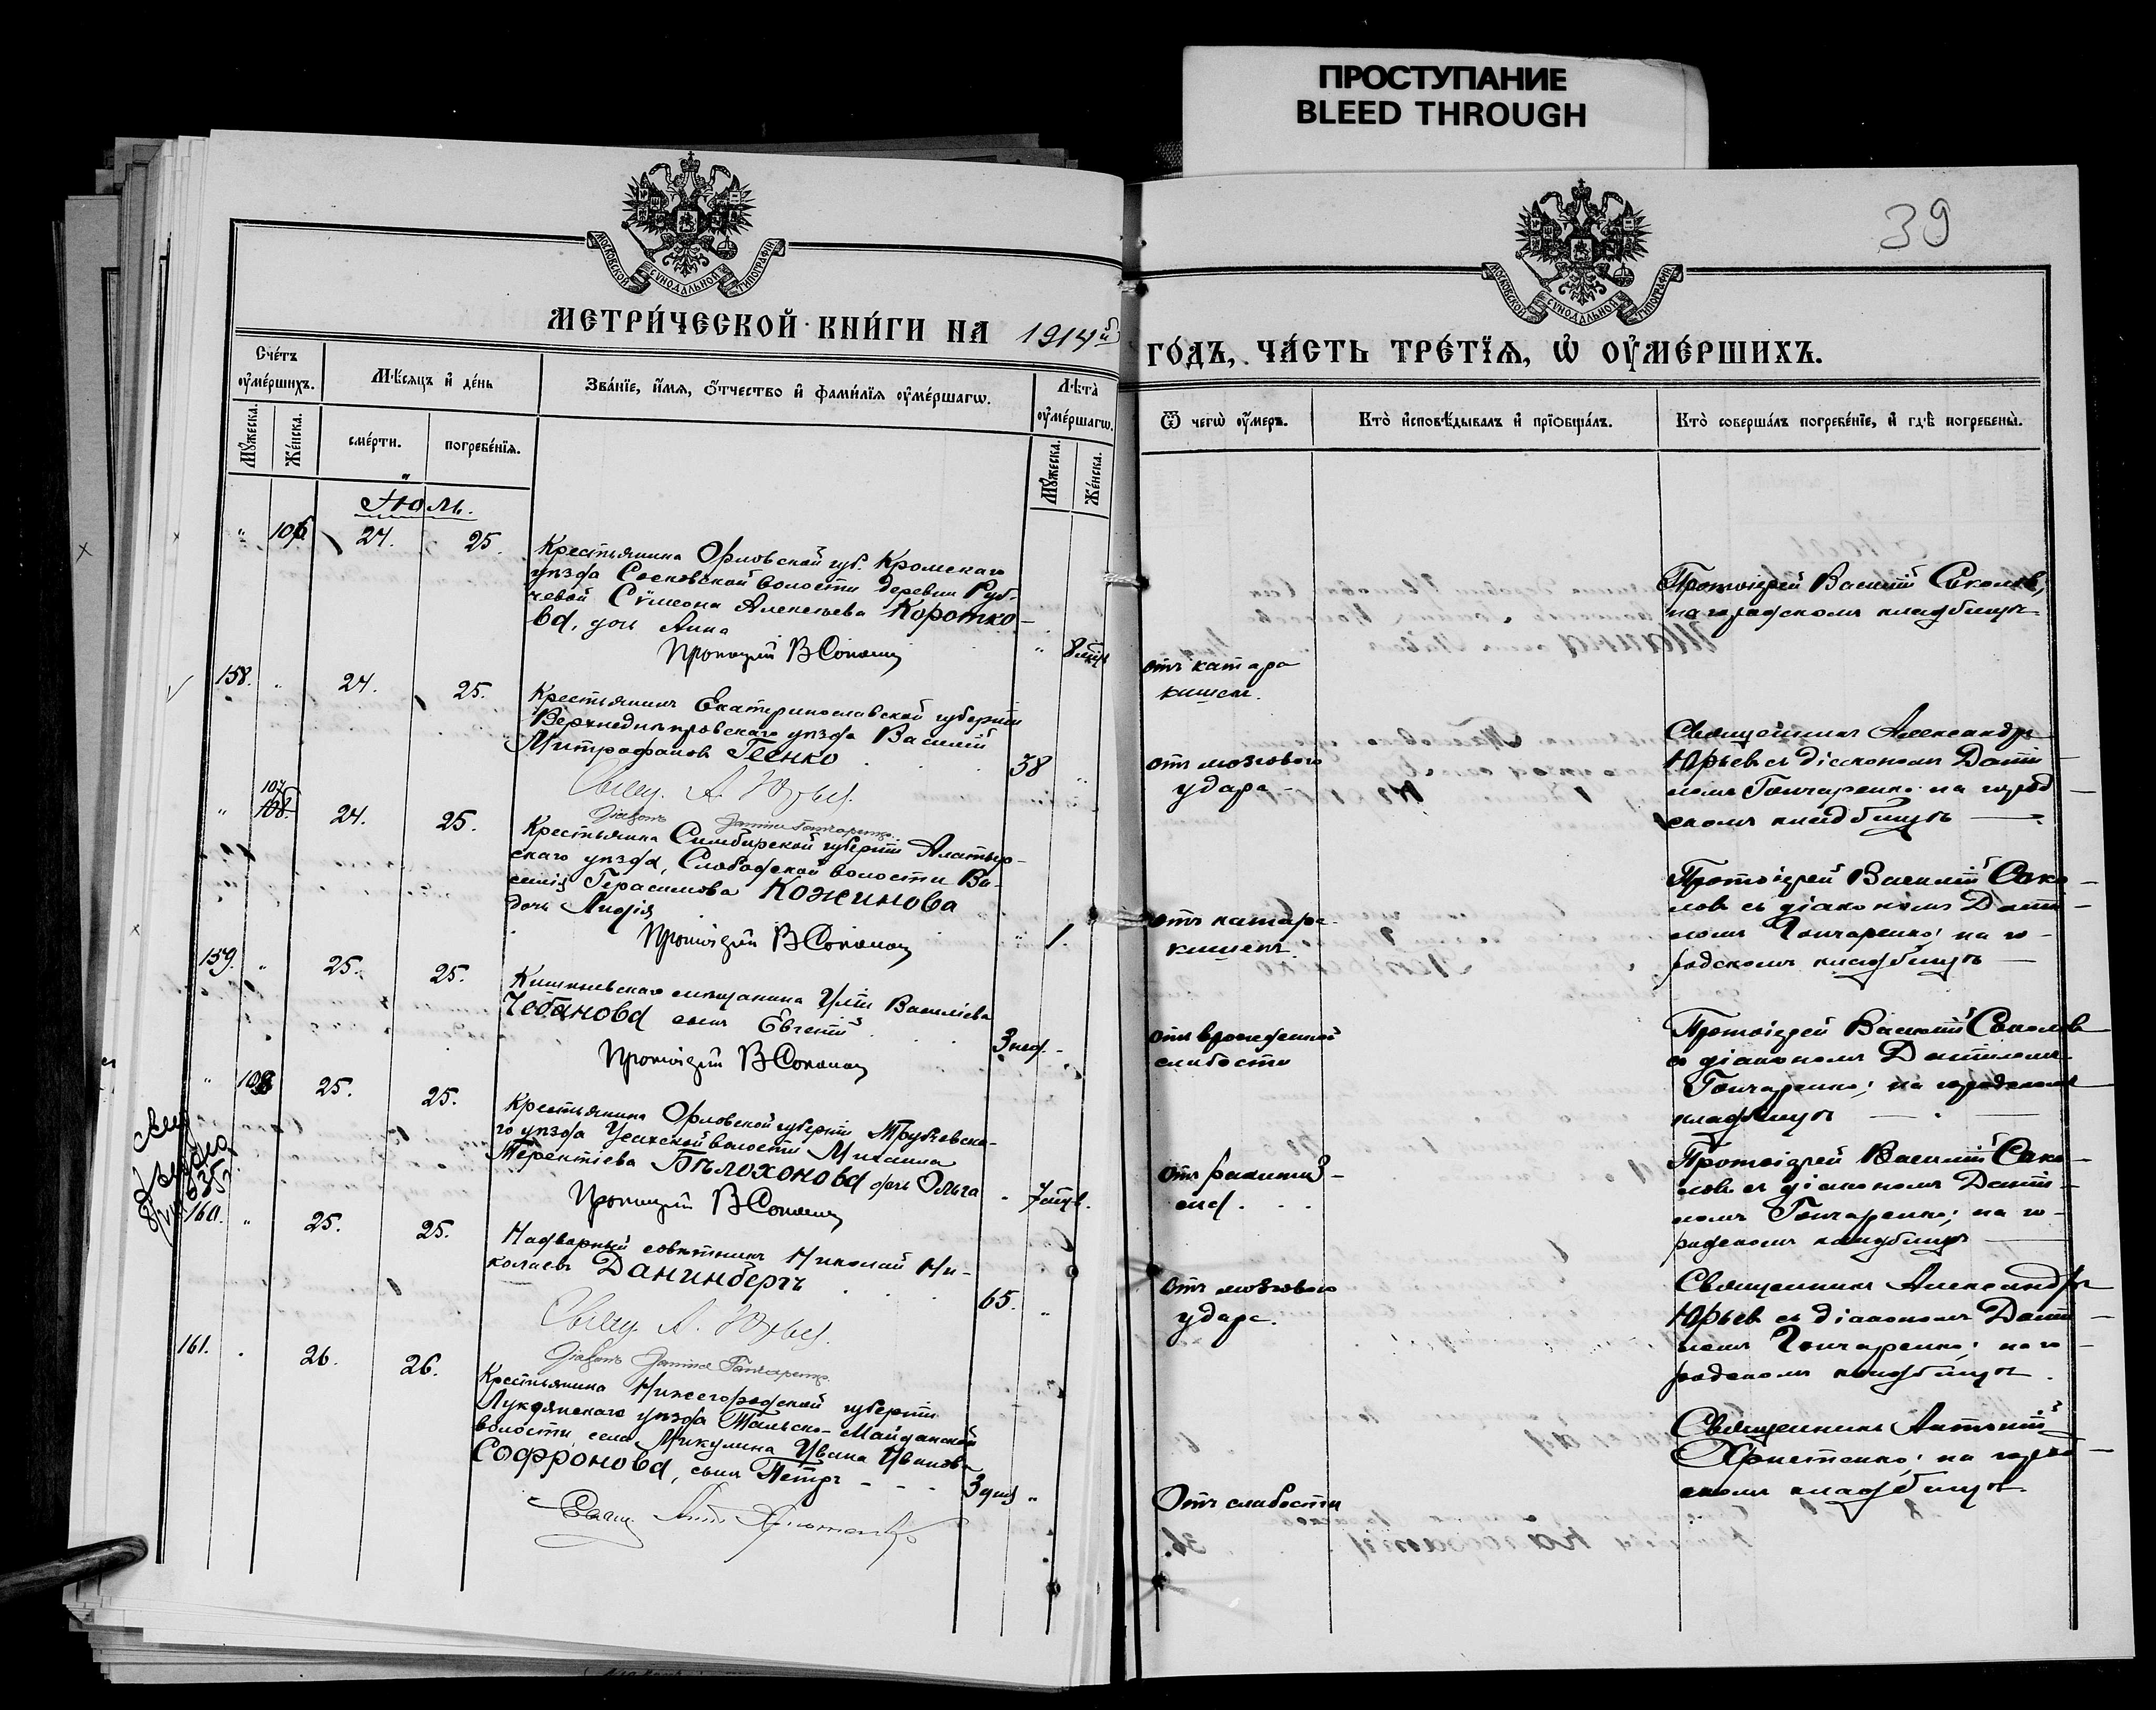 ПРОСТУПАНИЕ
BLEED THROUGH
39
МОСКОВСКОЙ СѴНОДАЛЬНОЙ ТИПОГРАФІИ
МОСКОВСКОЙ СѴНОДАЛЬНОЙ ТИПОГРАФІИ
МЕТРИ́ЧЕСКОЙ КНИ́ГИ НА 1914й
ГО́ДЪ, ЧА́СТЬ ТРЕ́ТІѦ, Ѡ҆ ОУ҆МЕ́РШИХЪ.
Сче́тъ оу҆ме́ршихъ.
Мꙋжеска.
Же́нска.
Мѣ́сяцъ и҆ де́нь
сме́рти.
погребе́нїѧ.
Зва́нїе, и҆́мѧ, ѻ҆́тчество и҆ фами́лїѧ оу҆ме́ршагѡ.
Лѣ́та оу҆ме́ршагѡ.
Мꙋжеска.
Же́нска.
Ѿ чегѡ̀ оу҆́меръ.
Кто̀ и҆сповѣ́дывалъ и҆ прїѻбща́лъ.
Кто̀ соверша́лъ погребе́нїе, и҆ гдѣ̀ погребены̀.
Іюль.
" 106 24. 25.
Крестьянина Орловской губ. Кромскаго
уѣзда Сосковской волости деревни Руб-
чевой Сѵмеона Алексѣева Коротко-
ва, дочь Анна
" 8 мѣс
Протоіерей В Соколов
отъ катара
кишекъ.
Протоіерей Василій Соколовъ;
на городскомъ кладбищѣ
158. " 24. 25.
Крестьянинъ Екатеринославской губерніи
Верхнеднѣпровскаго уѣзда Василій
Митрофановъ Геенко
38 "
Свящ. А. Юрьев.
Діаконъ Даниилъ Гончаренко
отъ мозгового
удара
Священникъ Александръ
Юрьевъ съ діакономъ Дани-
ломъ Гончаренко на город-
скомъ кладбищѣ
" 107 108. 24. 25.
Крестьянина Симбирской губерніи Алатыр-
скаго уѣзда, Слободской волости Ва-
силія Герасимова Кожинова
дочь Лидія
" 1.
Протоіерей В Соколов
отъ катара
кишекъ.
Протоіерей Василій Соко-
ловъ съ діакономъ Дани-
ломъ Гончаренко; на го-
родскомъ кладбищѣ
159. " 25. 25.
Кишиневскаго мѣщанина Иліи Василіева
Чебанова сынъ Евгеній
3 нед. "
Протоіерей В Соколов
отъ врожденной
слабости
Протоіерей Василій Соколовъ
съ діакономъ Даниломъ
Гончаренко; на городскомъ
кладбищѣ
" 108 25. 25.
Крестьянина Орловской губерніи Трубчевска-
го уѣзда Усохской волости Михаила
Терентіева Бѣлохонова дочь Ольга
" 7 мѣс.
Протоіерей В Соколов
Протоіерей Василій Соко-
ловъ съ діакономъ Дани-
ломъ Гончаренко; на го-
родскомъ кладбищѣ
160. " 25. 25.
Надворный совѣтникъ Николай Ни-
колаевъ Данинбергъ
65. "
Свящ. А. Юрьев.
Діаконъ Даниилъ Гончаренко
отъ мозгового
удара.
Священникъ Александръ
Юрьевъ съ діакономъ Дани-
ломъ Гончаренко; на го-
родскомъ кладбищѣ.
161. " 26. 26.
Крестьянина Нижегородской губерніи
Лукоянскаго уѣзда Тольско-Майданской
волости, села Микулина Ивана Иванова
Софронова, сынъ Петръ
3 дня "
Отъ слабости
Священникъ Антоній
Христенко; на город-
скомъ кладбищѣ